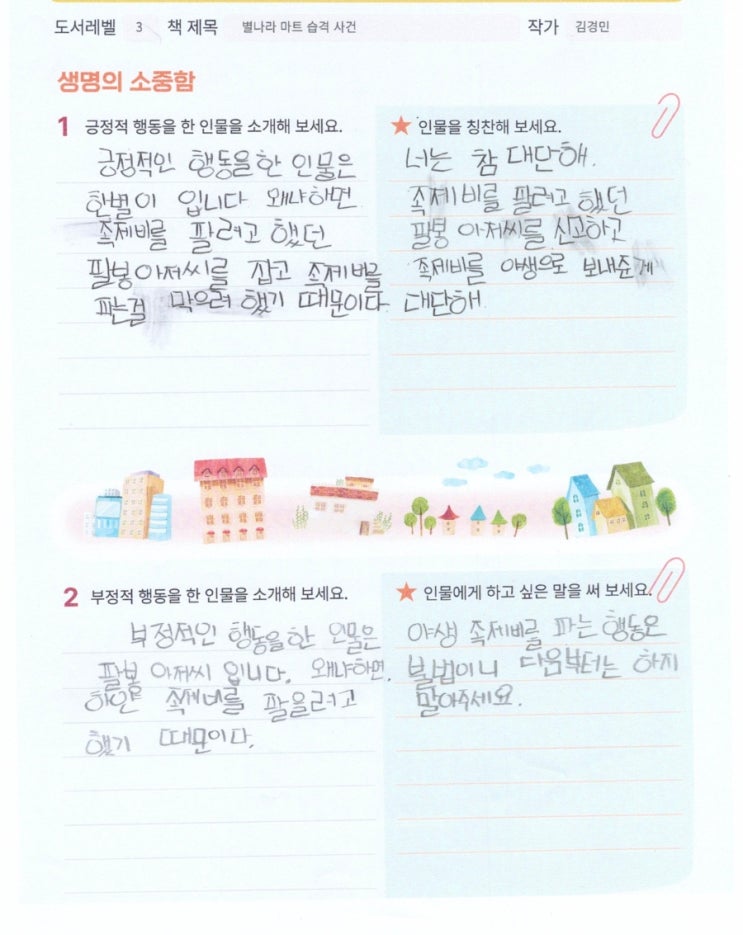 도서레벨 3 책 제목 별나라 마트 습격 사건 작가 김경민
생명의 소중함
1 긍정적 행동을 한 인물을 소개해 보세요.
긍정적인 행동을 한 인물은
한별이 입니다 왜냐하면
족제비를 팔려고 했던
필봉 아저씨를 잡고 족제비를
파는걸 막으려 했기 때문이다
★ 인물을 칭찬해 보세요.
너는 참 대단해.
족제비를 팔려고 했던
필봉 아저씨를 신고하고
족제비를 야생으로 보내준게
대단해.
2 부정적 행동을 한 인물을 소개해 보세요.
부정적인 행동을 한 인물은
필봉 아저씨 입니다. 왜냐하면.
하얀 족제비를 팔을려고
했기 때문이다.
★ 인물에게 하고 싶은 말을 써 보세요.
야생 족제비를 파는 행동은
불법이니 다음부터는 하지
말아주세요.